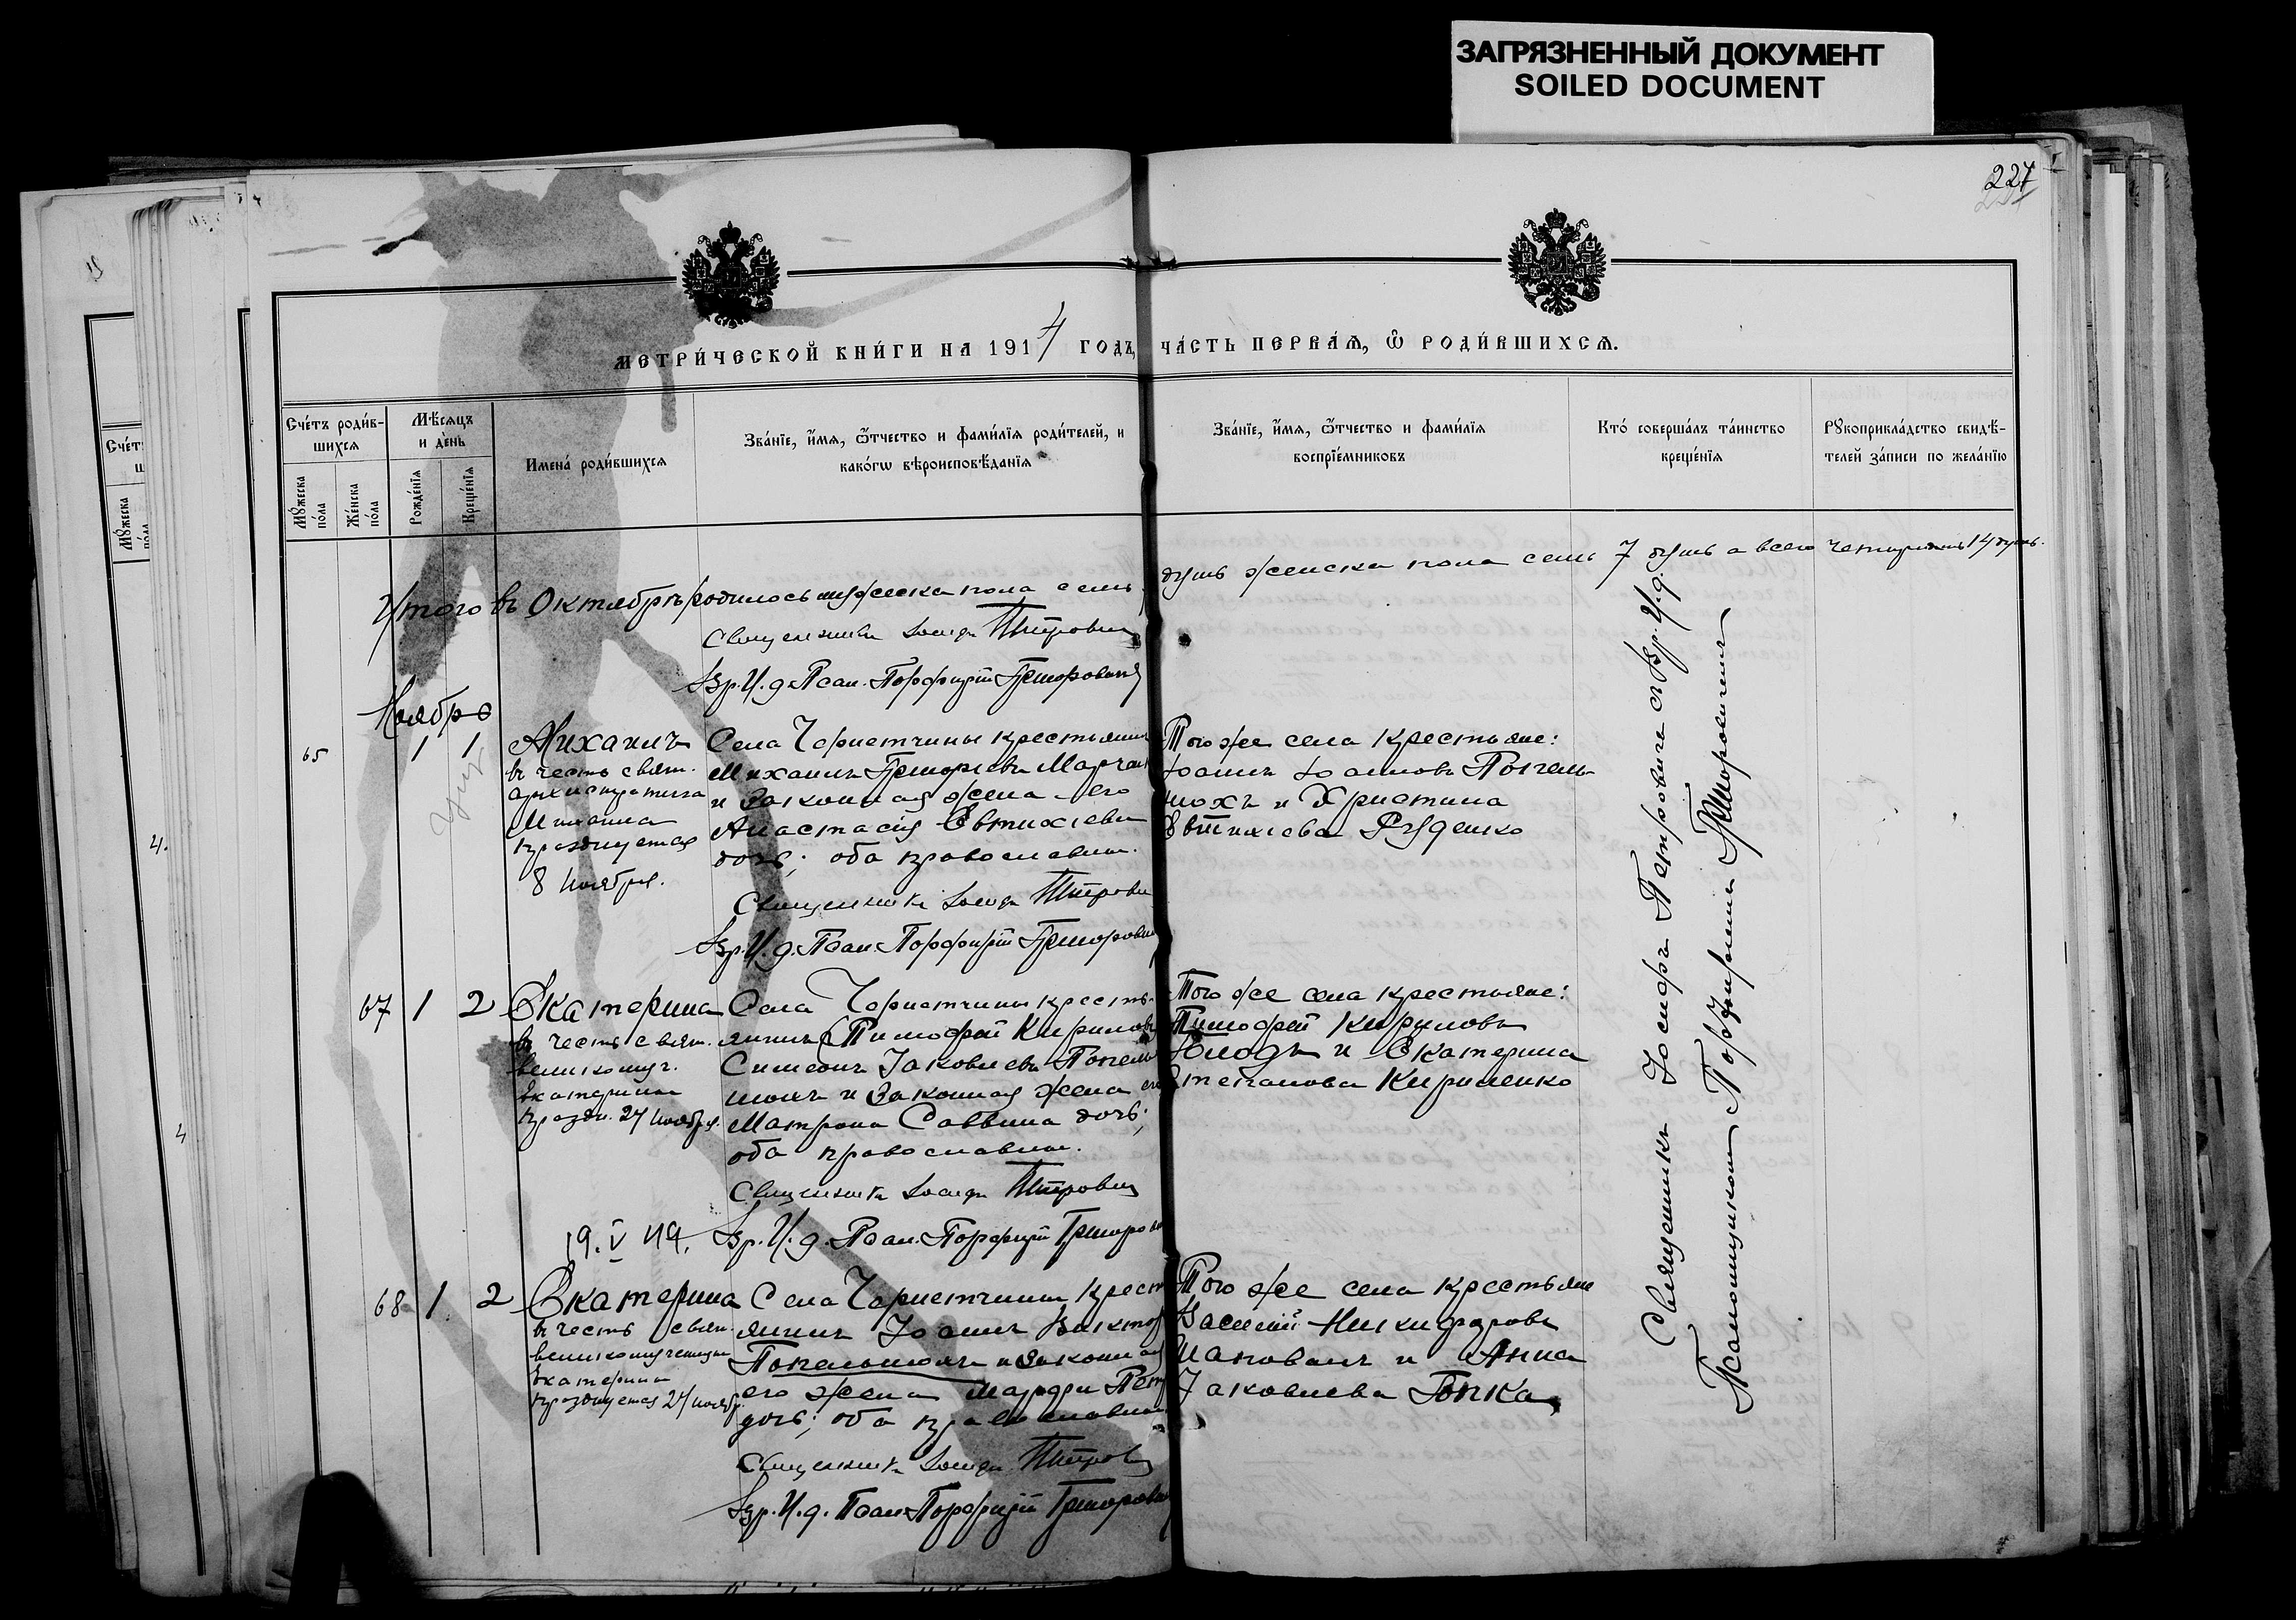 ЗАГРЯЗНЕННЫЙ ДОКУМЕНТ
SOILED DOCUMENT
227
МЕТРИ́ЧЕСКОЙ КНИ́ГИ НА 1914 ГОДЪ, ЧА́СТЬ ПЕРВА́Ѧ, Ѡ РОДИ́ВШИХСѦ.
Сче́тъ роди́в-
шихсѧ
Мꙋ́жеска
по́ла
Же́нска
по́ла
Мѣ́сѧцъ
и де́нь
Рожде́нїѧ
Креще́нїѧ
Имена̀ роди́вшихсѧ
Зва́нїе, и́мѧ, ѻ҆́тчество и фами́лїѧ роди́телей, и
како́гѡ вѣроисповѣ́данїѧ
Зва́нїе, и́мѧ, ѻ҆́тчество и фами́лїѧ
воспрїе́мниковъ
Кто́ соверша́лъ та́инство
креще́нїѧ
Рꙋкоприкла́дство свидѣ́-
телей за́писи по жела́нїю
Итого въ Октябрѣ родилось мужеска пола семь душъ женска пола семь 7 душъ а всего четырнадцать 14 душъ.
Священникъ Іосифъ Петровичъ
Вр. И. д. Псал. Порфирій Григоровичъ
Ноябрь
65 1 1
Михаилъ
въ честь свят.
архистратига
Михаила
празднуемаго
8 Ноября.
Села Чернетчины крестьянинъ
Михаилъ Григорьевъ
и Законная жена его
Анастасія Евтихіева
дочь; оба православн.
Священникъ Іосифъ Петровичъ
Вр. И. д. Псал. Порфирій Григоровичъ
Того же села крестьяне:
Іоаннъ Іоанновъ Попель-
нюхъ и Христина
Евтихіева Руденко
67 1 2
Екатерина
въ честь свят.
великомуч.
Екатерины
праздн. 24 ноября.
Села Чернетчины кресть-
янинъ (Тимофей Кириловъ
Симеонъ Іаковлевъ Попель-
нюхъ и Законная жена его
Матрона Саввина дочь;
оба православн.
Священникъ Іосифъ Петровичъ
19. V
Вр. И. д. Псал. Порфирій Григоровичъ
Того же села крестьяне:
Тимофей Кириловъ
и Екатерина
Степанова Кириленко
68 1. 2
Екатерина
въ честь свят.
великомученицы
Екатерины
празднуемая 24 ноябр.
Села Чернетчины крест
янинъ Іоаннъ
Попельнюхъ и Законная
его жена Марфа Петр
дочь; оба православн.
Священникъ Іосифъ Петров
Вр. И. д. Псал. Порфирій Григорович
Того же села крестьяне
Василій Никифоровъ
Шаповалъ и Анна
Іаковлева
Священникъ Іосифъ Петровичъ съ Вр. И. д.
Псаломщикомъ Порфиріемъ Григоровичемъ